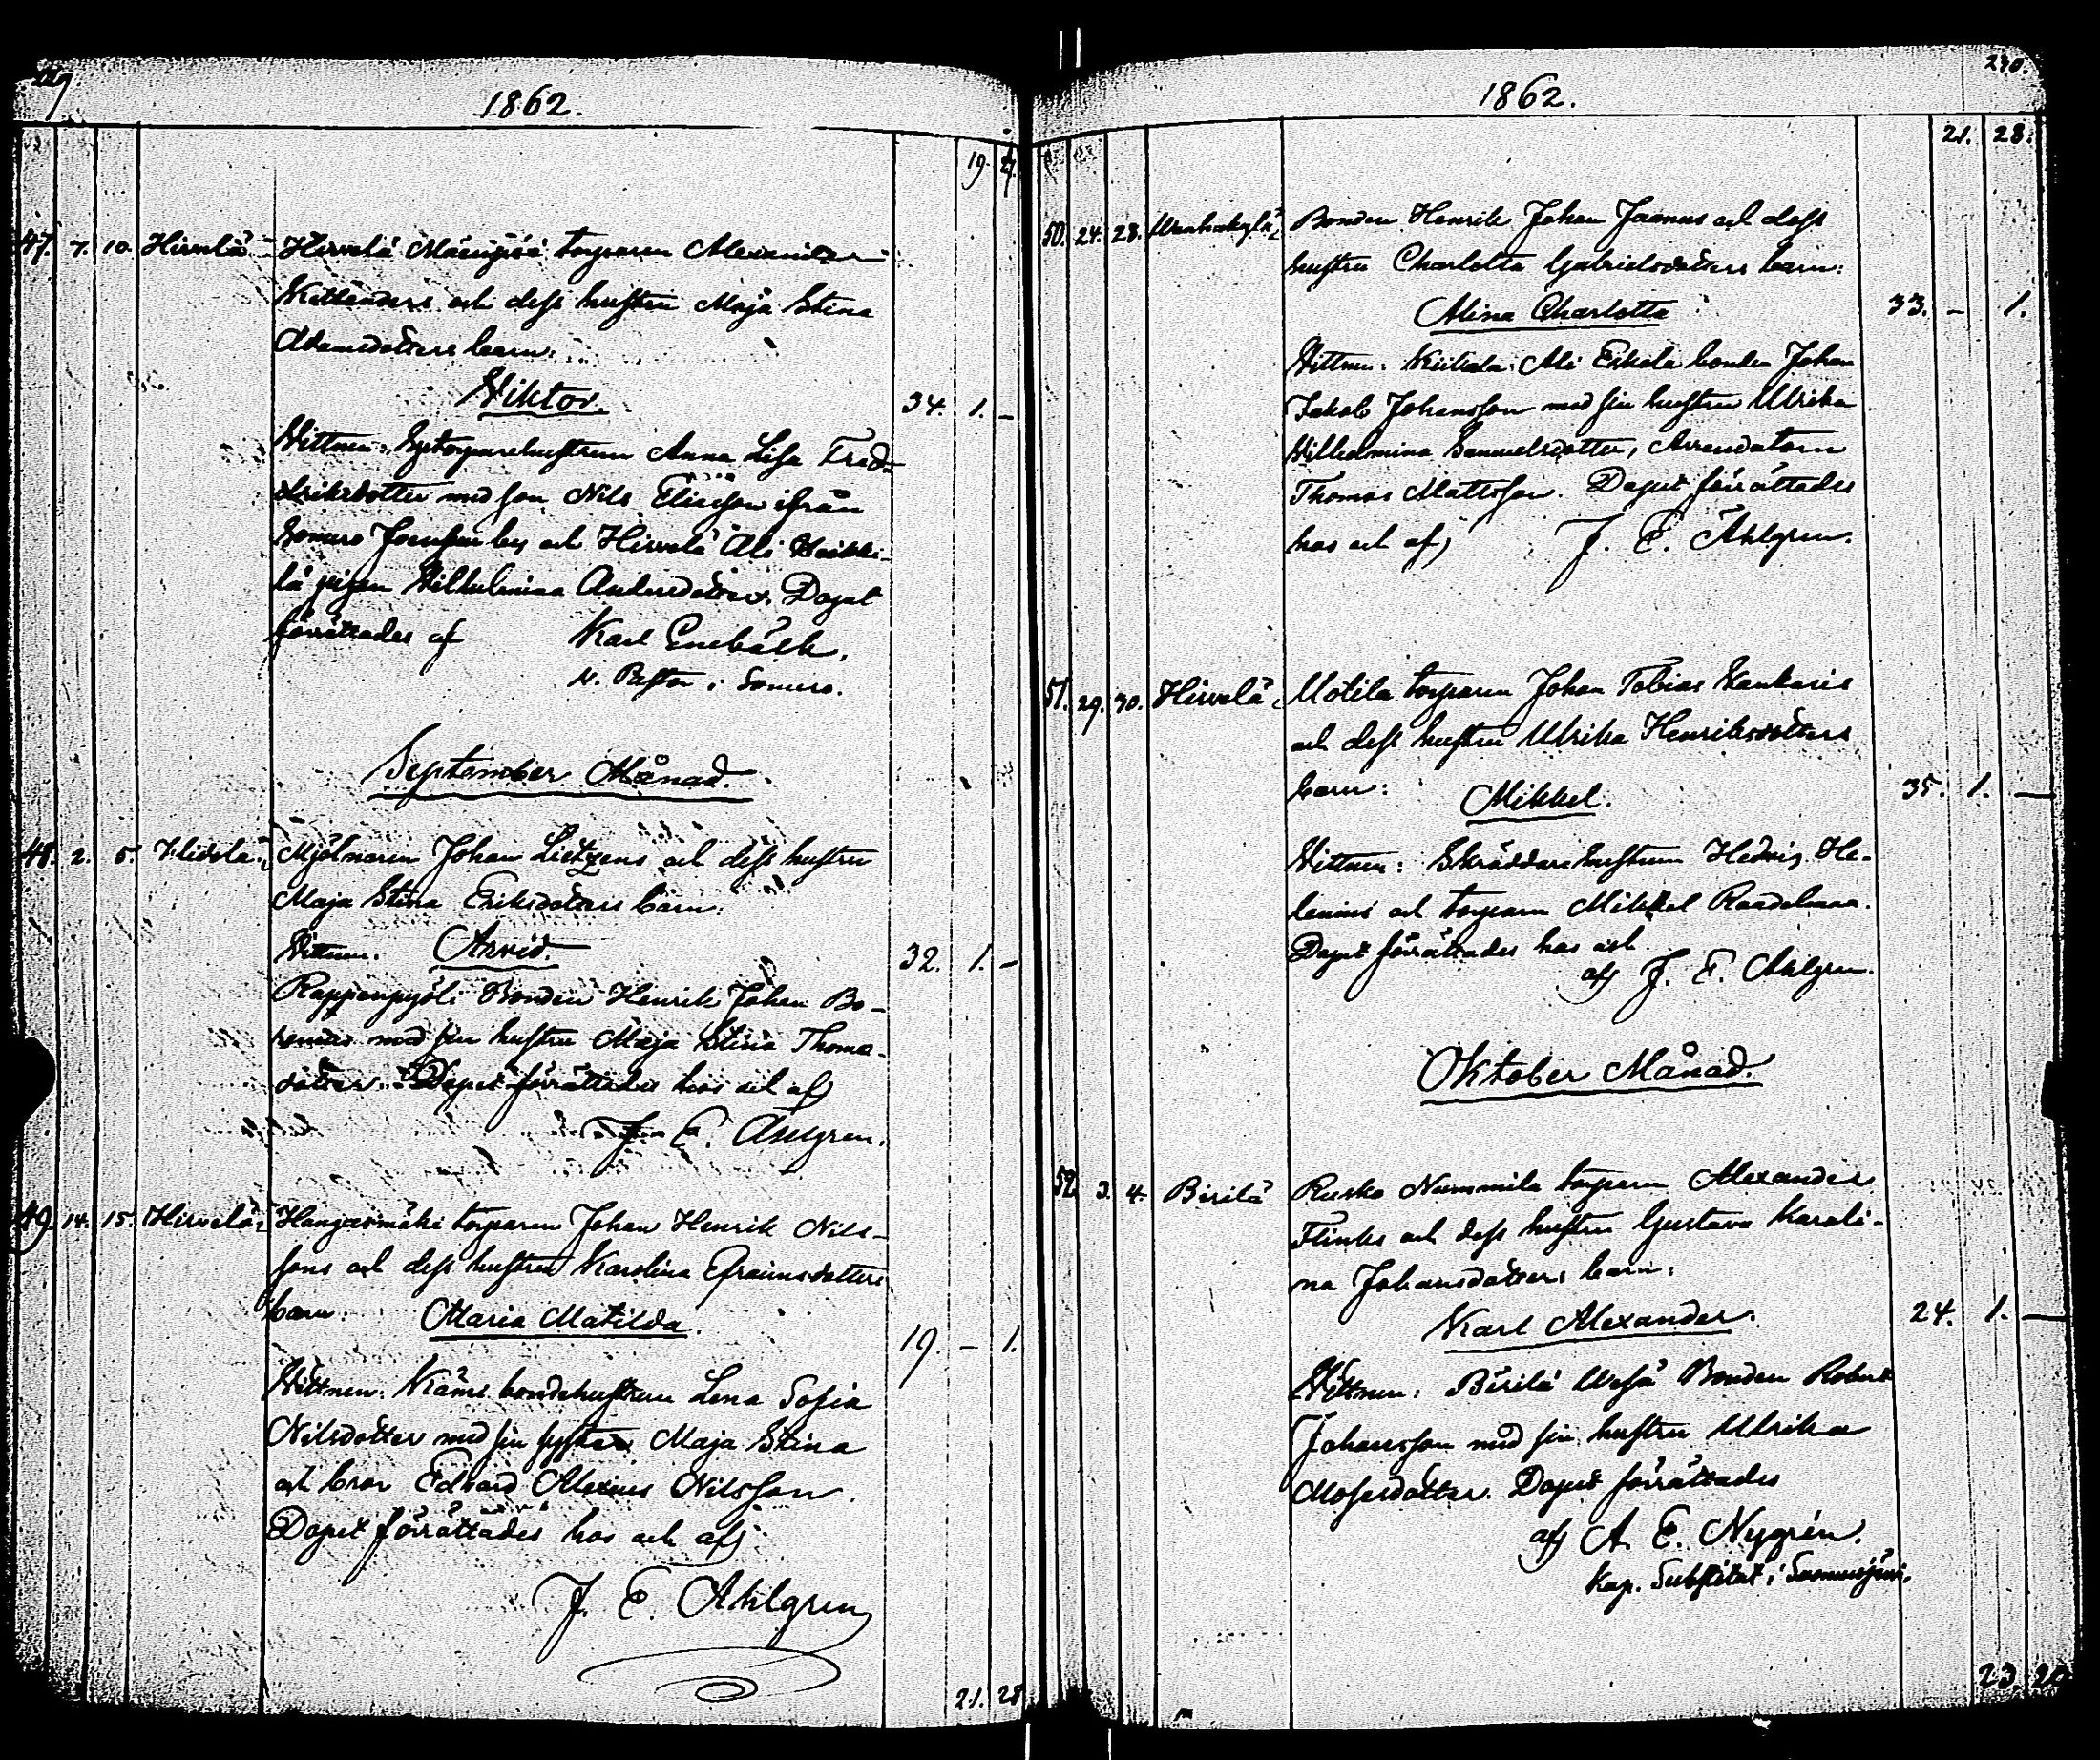 1862.
19.
47. 7. 10. Hirvelä Hirvelä torparen Alexander
och dess hustru Maja Stina
Adamsdotters barn:
Viktor.
34. 1. –
Vittnen: Anna Lisa Fred-
riksdotter med son Nils ifrån
Somero by och Hirvelä Ali Heikki-
lä pigan Vilhelmina Andersdotter. Dopet
förrättades af Karl Enebäck,
v. Pastor i Somero.
September Månad.
48. 2. 5. Mjölnaren Johan Lietzens och dess hustru
Maja Stina Eriksdotters barn:
Vittnen. Arvid.
32. 1. –
Rappenpyöli Bonden Henrik Johan Bo-
med sin hustru Maja Stina Thomas-
dotter. Dopet förrättades hos och af
J. E. Ahlgren.
49. 14. 15. Hirvelä, Hangasmäki torparen Johan Henrik Nils-
sons och dess hustru Karolina Efraimsdotters
barn: Maria Matilda.
19. – 1.
Vittnen: Bondehustrun Lena Sofia
Nilsdotter med sin syster Maja Stina
och bror Edvard Alexius Nilsson.
Dopet förrättades hos och af
J. E. Ahlgren
21. 28
230.
1862.
21. 28.
50. 24. 28. Wanhakylä, Bonden Henrik Johan och dess
hustru Charlotta Gabrielsdotters barn:
Alina Charlotta
33. – 1.
Vittnen: Ali Eskola bonden Johan
Jakob Johansson med sin hustru Ulrika
Vilhelmina Samuelsdotter, Arrendatorn
Thomas Mattsson. Dopet förrättades
hos och af J. E. Ahlgren.
51. 29. 30. Hirvelä, Motila torparen Johan Tobias
och dess hustru Ulrika Henriksdotters
barn: Mikkel.
35. 1. –
Vittnen: Skräddarehustrun Hedvig He-
lenius och torparen Mikkel Raadelma.
Dopet förrättades hos och
af J. E. Ahlgren.
Oktober Månad.
52. 3. 4. Pirilä Rusko Nummila torparen Alexander
Flinks och dess hustru Gustava Karoli-
na Johansdotters barn:
Karl Alexander.
24. 1. –
Vittnen: Pirilä Bonden Robert
Johansson med sin hustru Ulrika
Mosesdotter. Dopet förrättades
af A. E. Nygrén.
Kap. Substitut i Sammatti.
23.